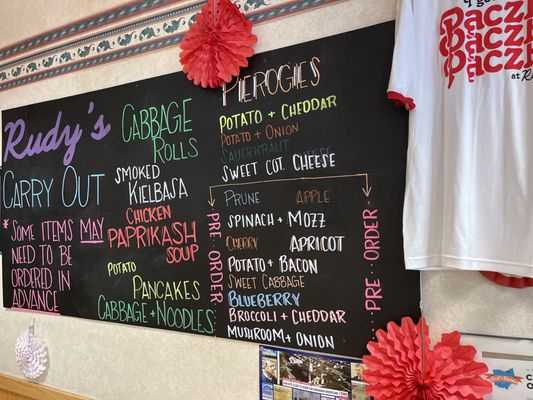 Rudy's
Carry Out
* Some Items May
need to be
ordered in
advance
Cabbage
Rolls
Smoked
Kielbasa
Chicken
Paprikash
Soup
Potato
Pancakes
Cabbage + Noodles
Pierogies
Potato + Cheddar
Potato + Onion
Sauerkraut
Sweet Cot. Cheese
Prune Apple
Spinach + Mozz
Cherry Apricot
Potato + Bacon
Sweet Cabbage
Blueberry
Broccoli + Cheddar
Mushroom + Onion
Pre Order
Pre Order